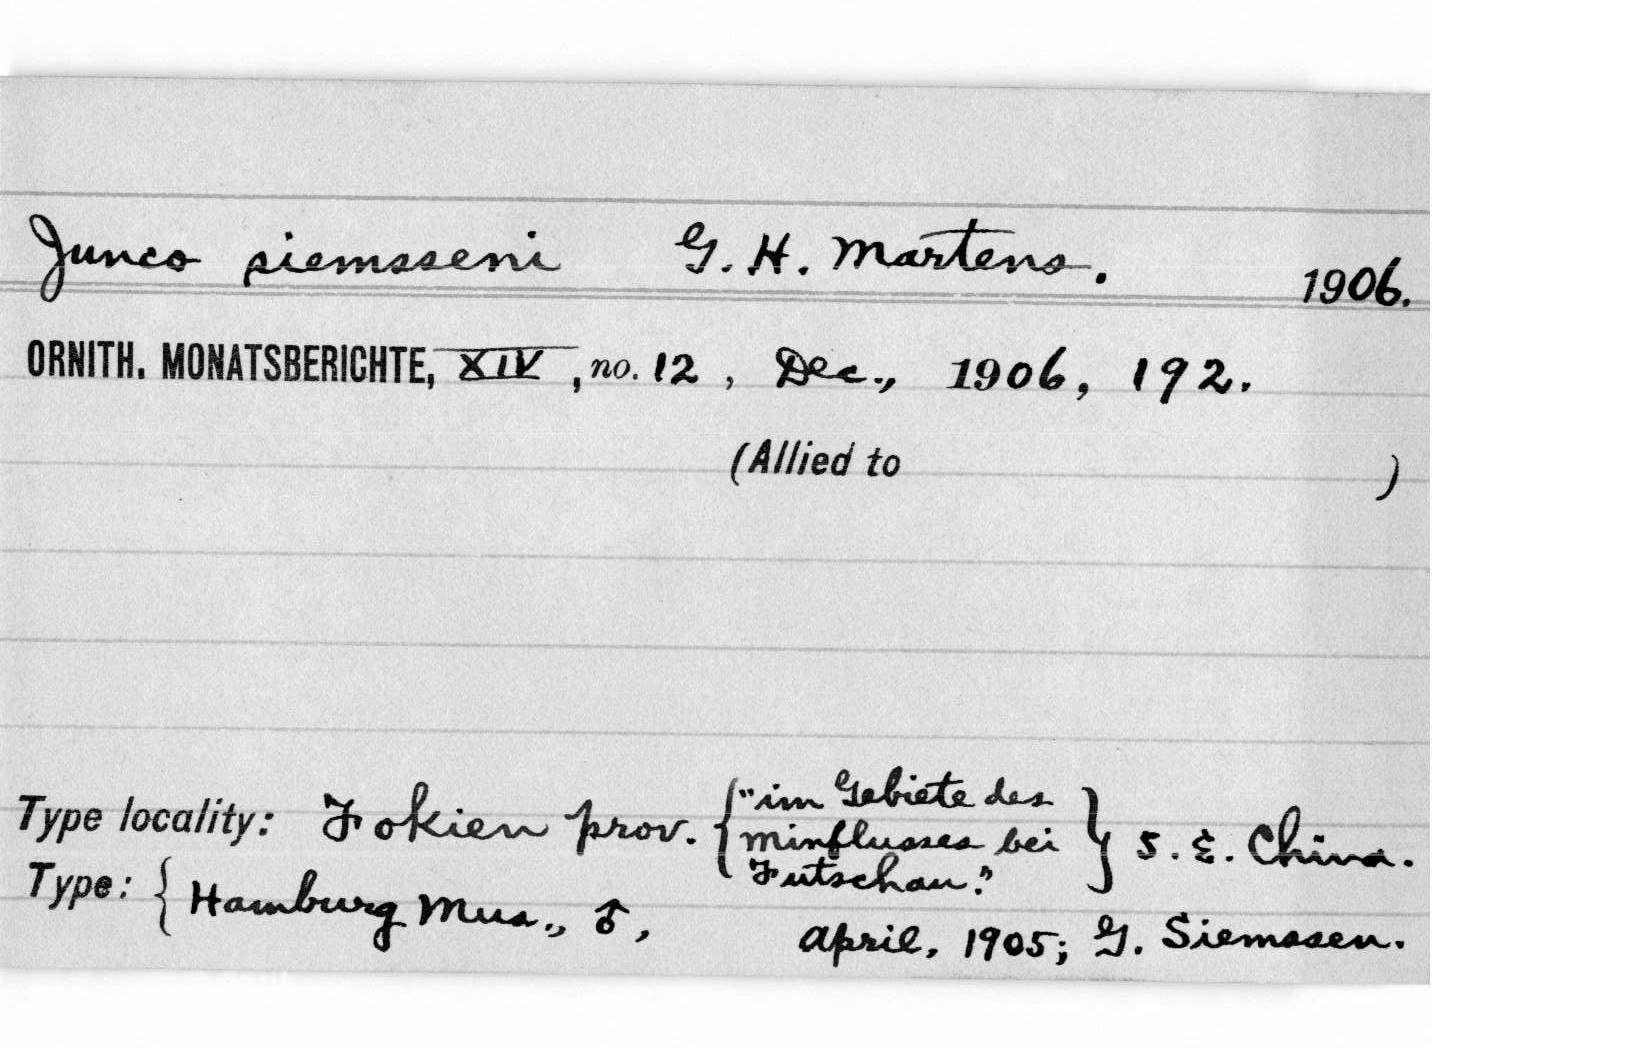 Junco siemsseni G. H. Martens. 1906.
ORNITH. MONATSBERICHTE, XIV, no. 12, Dec., 1906, 192.
(Allied to )
Type locality: Fokien prov. {"im Gebiete des Minflusses bei Futschau."} S. E. China.
Type: { Hamburg Mus., ♂, April, 1905; G. Siemssen.